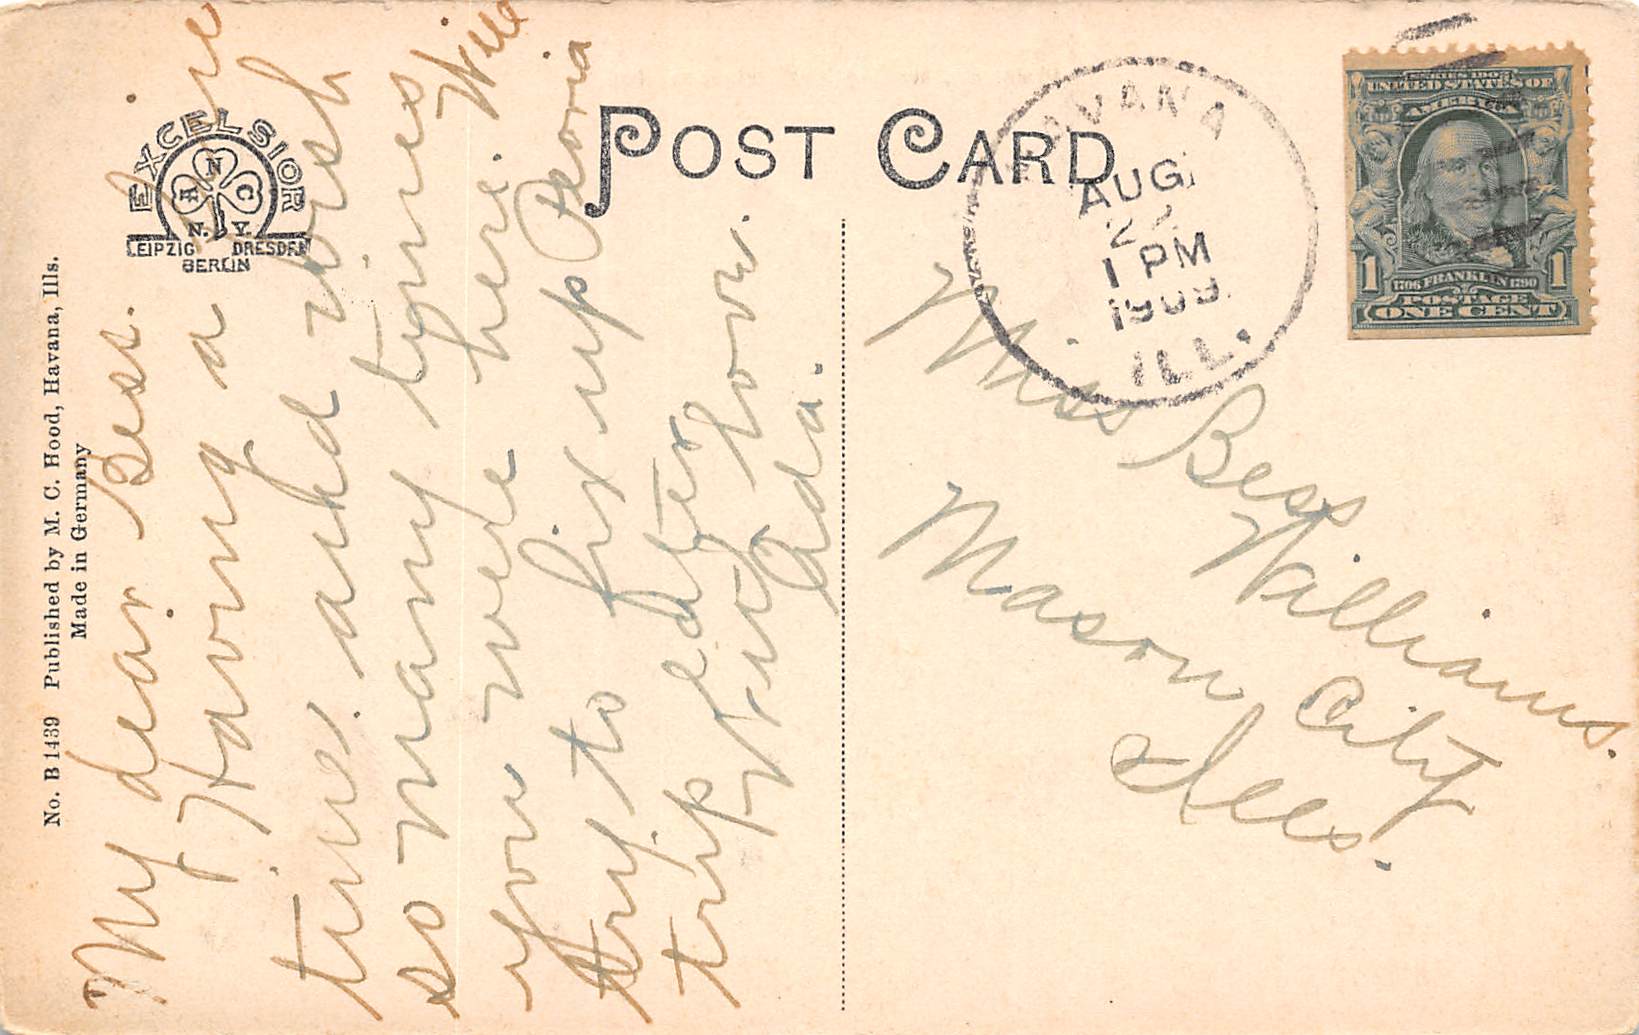 No. B 1439 Published by M. C. Hood, Havana, Ills.
Made in Germany
EXCELSIOR
A N C
N. Y.
LEIPZIG DRESDEN
BERLIN
POST CARD
HAVANA
AUG
22
1 PM
1909
ILL.
SERIES 1902
UNITED STATES OF
AMERICA
1 1
1706 FRANKLIN 1790
POSTAGE
ONE CENT
My dear Bess.
Having a fine
time and wish
so many times
you were here. Will
try to fix up Peoria
trip later
With love.
Ada.
Miss Bess Williams.
Mason City
Ills.